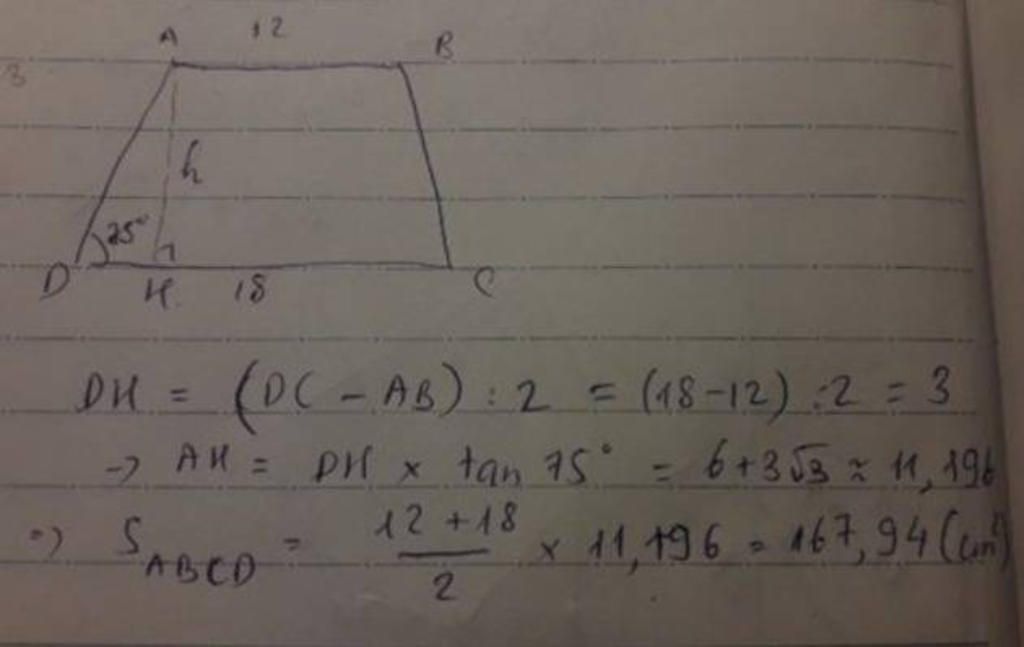 A 12 B
3
h
75°
D H 18 C
DH = (DC - AB) : 2 = (18-12) : 2 = 3
→ AH = DH × tan 75° = 6+3√3 ≈ 11,196
⇒ S_ABCD = (12 + 18)/2 × 11,196 = 167,94 (cm²)